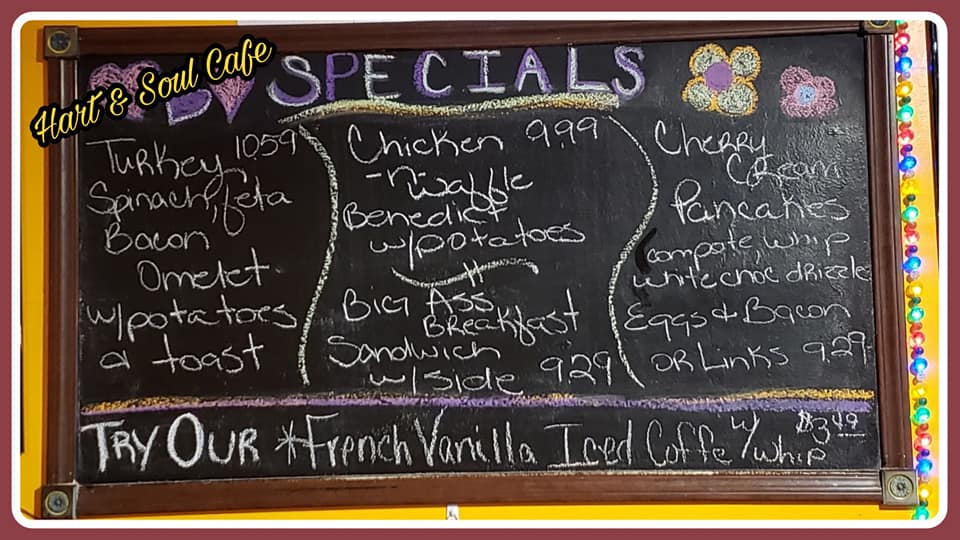 Hart & Soul Cafe
SPECIALS
Turkey 10.59
Spinach, feta
Bacon
Omelet
w/potatoes
a toast
Chicken 9.99
-n waffle
Benedict
w/potatoes
Big Ass
Breakfast
Sandwich
w/side 9.29
Cherry
Cream
Pancakes
Compote, whip
white choc drizzle
Eggs & Bacon
OR Links 9.29
TRY OUR *French Vanilla Iced Coffe w/whip $3.49